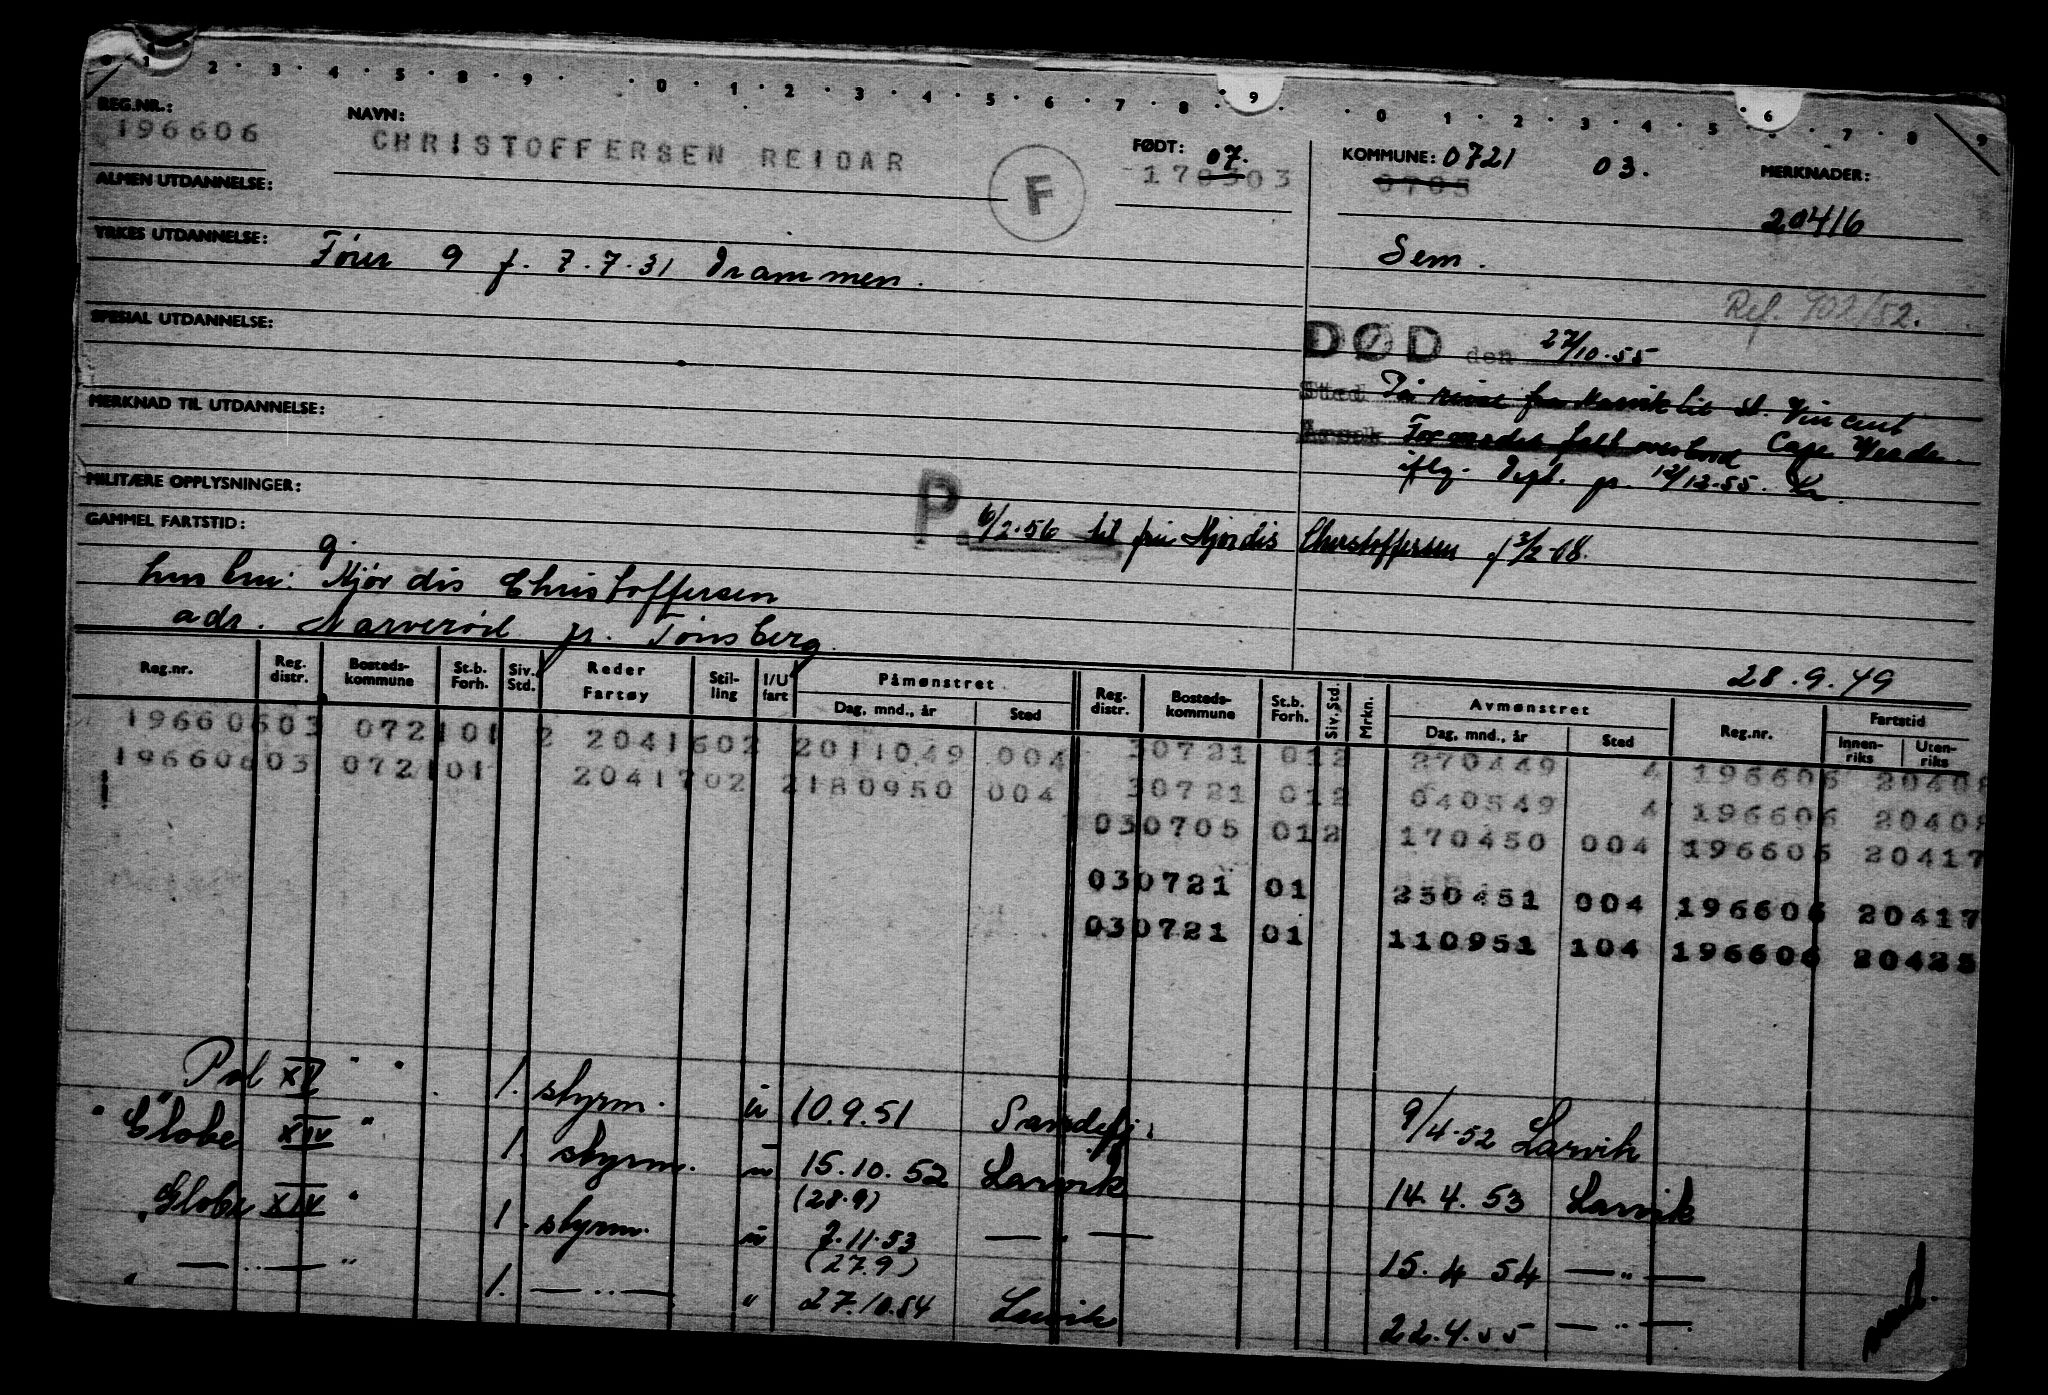 0 1 2 3 4 5 8 9 0 1 2 3 4 5 6 7 8 9 0 1 2 3 4 5 6 7 8 9
REG.NR.: NAVN: FØDT: 07. KOMMUNE: 0721 03. MERKNADER:
196606 CHRISTOFFERSEN REIDAR F 170303 0705
ALMEN UTDANNELSE: 20416
YRKES UTDANNELSE: Fører 9 f. 7.7.31 Drammen. Sem.
Ref. 902/52.
SPESIAL UTDANNELSE: DØD den 27/10.55
Sted På reise fra Narvik til St. Vincent
MERKNAD TIL UTDANNELSE: Årsak Formodet falt overbord Cape Verde.
iflg. Dept. pr. 12/12.55.
MILITÆRE OPPLYSNINGER:
P. 6/2.56 til fru Hjørdis Christoffersen f 3/2-08.
GAMMEL FARTSTID:
g.
hustru: Hjørdis Christoffersen
adr. Narverød pr. Tønsberg.
28.9.49
Reg.nr. Reg. distr. Bosteds-kommune St.b. Forh. Siv. Std. Reder Fartøy Stil-ling I/U fart Påmønstret Dag, mnd., år Sted Reg. distr. Bosteds-kommune St.b. Forh. Siv. Std. Mrkn. Avmønstret Dag, mnd., år Sted Reg.nr. Fartstid Innen-riks Uten-riks
19660603 072101 2 2041602 2011049 004 30721 012 270449 4 196606 20408
19660603 072101 2041702 2180950 004 30721 012 040549 4 196606 20408
030705 012 170450 004 196606 20417
030721 01 250451 004 196606 20417
030721 01 110951 104 196606 20425
"Pol XV" 1. styrm. u 10.9.51 Sandefj. 9/4.52 Larvik
"Globe XIV" 1. styrm. u 15.10.52 Larvik 14.4.53 Larvik
(28.9)
"Globe XIV" 1. styrm. u 7.11.53 — " — 15.4 54 — " —
(27.9)
" — " — " 1. — " — " 27.10.54 Larvik 22.4.55 — " —